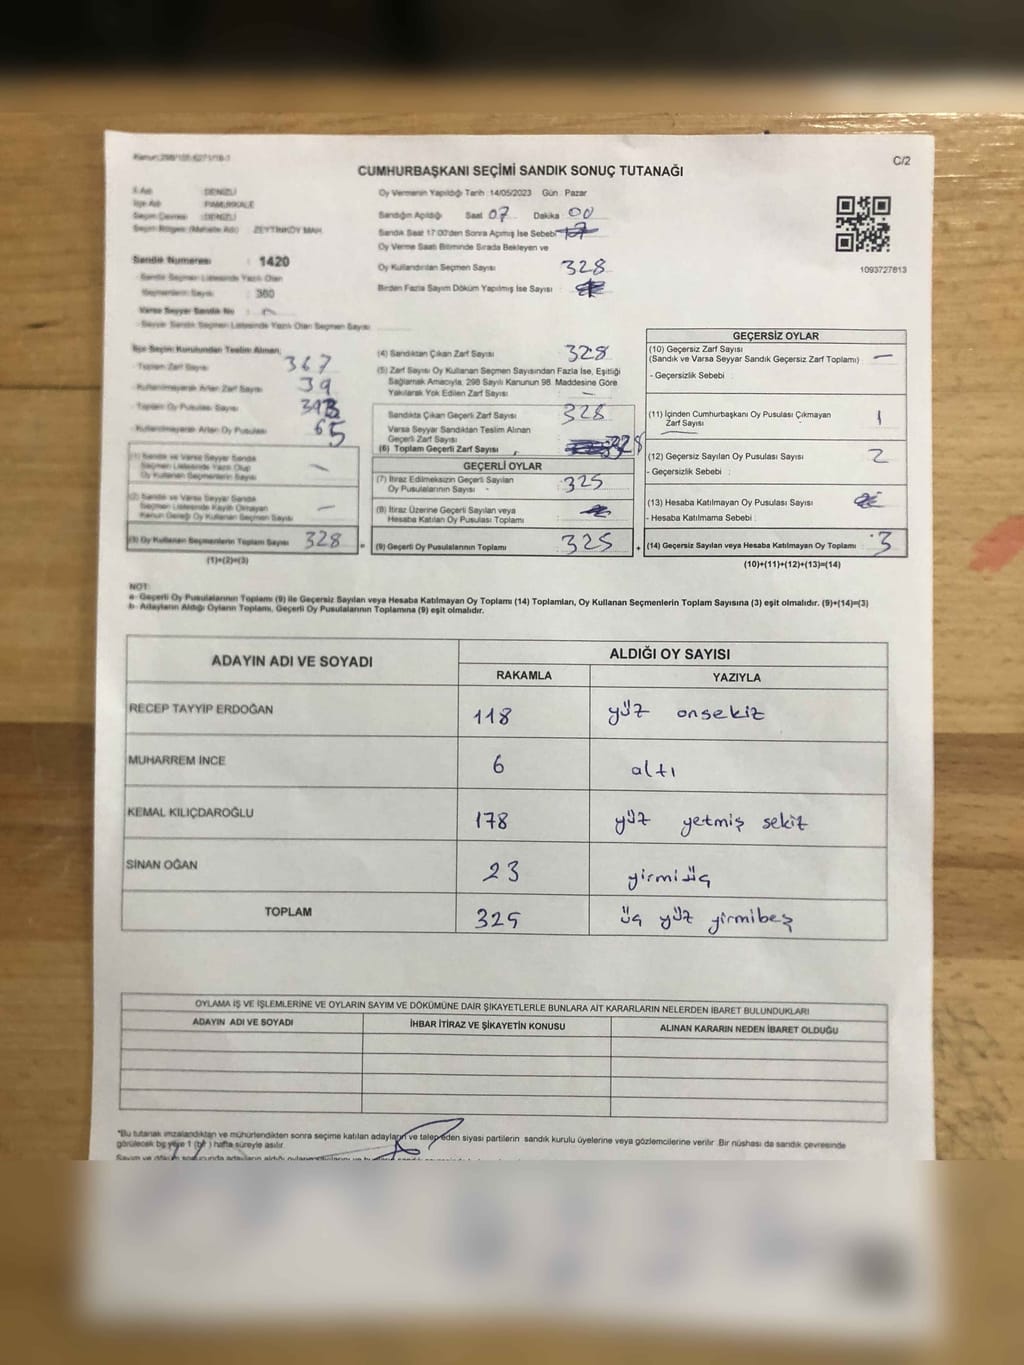 Kanun:298/155-6271/16-1
C/2
CUMHURBAŞKANI SEÇİMİ SANDIK SONUÇ TUTANAĞI
İl Adı : DENİZLİ
İlçe Adı : PAMUKKALE
Seçim Çevresi : DENİZLİ
Seçim Bölgesi (Mahalle Adı) ZEYTİNKÖY MAH.
Sandık Numarası : 1420
Sandık Seçmen Listesinde Yazılı Olan
Seçmenlerin Sayısı : 360
Varsa Seyyar Sandık No :
Seyyar Sandık Seçmen Listesinde Yazılı Olan Seçmen Sayısı
Oy Vermenin Yapıldığı Tarih :14/05/2023 Gün : Pazar
Sandığın Açıldığı Saat 07 Dakika 00
Sandık Saat 17:00'den Sonra Açmış İse Sebebi
Oy Verme Saati Bitiminde Sırada Bekleyen ve
Oy Kullandırılan Seçmen Sayısı 328
Birden Fazla Sayım Döküm Yapılmış İse Sayısı
1093727813
İlçe Seçim Kurulundan Teslim Alınan;
Toplam Zarf Sayısı 367
Kullanılmayarak Artan Zarf Sayısı 39
Toplam Oy Pusulası Sayısı
Kullanılmayarak Artan Oy Pusulası 65
(1) Sandık ve Varsa Seyyar Sandık
Seçmen Listesinde Yazılı Olup
Oy Kullanan Seçmenlerin Sayısı —
(2) Sandık ve Varsa Seyyar Sandık
Seçmen Listesinde Kayıtlı Olmayan
Kanun Gereği Oy Kullanan Seçmen Sayısı —
(3) Oy Kullanan Seçmenlerin Toplam Sayısı 328
(1)+(2)=(3)
(4) Sandıktan Çıkan Zarf Sayısı 328
(5) Zarf Sayısı Oy Kullanan Seçmen Sayısından Fazla İse, Eşitliği
Sağlamak Amacıyla, 298 Sayılı Kanunun 98. Maddesine Göre
Yakılarak Yok Edilen Zarf Sayısı —
Sandıkta Çıkan Geçerli Zarf Sayısı 328
Varsa Seyyar Sandıktan Teslim Alınan
Geçerli Zarf Sayısı
(6) Toplam Geçerli Zarf Sayısı 328
GEÇERLİ OYLAR
(7) İtiraz Edilmeksizin Geçerli Sayılan
Oy Pusulalarının Sayısı 325
(8) İtiraz Üzerine Geçerli Sayılan veya
Hesaba Katılan Oy Pusulası Toplamı
= (9) Geçerli Oy Pusulalarının Toplamı 325
GEÇERSİZ OYLAR
(10) Geçersiz Zarf Sayısı
(Sandık ve Varsa Seyyar Sandık Geçersiz Zarf Toplamı) —
- Geçersizlik Sebebi :
(11) İçinden Cumhurbaşkanı Oy Pusulası Çıkmayan
Zarf Sayısı 1
(12) Geçersiz Sayılan Oy Pusulası Sayısı 2
- Geçersizlik Sebebi :
(13) Hesaba Katılmayan Oy Pusulası Sayısı
- Hesaba Katılmama Sebebi :
+ (14) Geçersiz Sayılan veya Hesaba Katılmayan Oy Toplamı 3
(10)+(11)+(12)+(13)=(14)
NOT:
a- Geçerli Oy Pusulalarının Toplamı (9) ile Geçersiz Sayılan veya Hesaba Katılmayan Oy Toplamı (14) Toplamları, Oy Kullanan Seçmenlerin Toplam Sayısına (3) eşit olmalıdır. (9)+(14)=(3)
b- Adayların Aldığı Oyların Toplamı, Geçerli Oy Pusulalarının Toplamına (9) eşit olmalıdır.
ADAYIN ADI VE SOYADI ALDIĞI OY SAYISI
RAKAMLA YAZIYLA
RECEP TAYYİP ERDOĞAN 118 yüz onsekiz
MUHARREM İNCE 6 altı
KEMAL KILIÇDAROĞLU 178 yüz yetmiş sekiz
SİNAN OĞAN 23 yirmiüç
TOPLAM 325 üç yüz yirmibeş
OYLAMA İŞ VE İŞLEMLERİNE VE OYLARIN SAYIM VE DÖKÜMÜNE DAİR ŞİKAYETLERLE BUNLARA AİT KARARLARIN NELERDEN İBARET BULUNDUKLARI
ADAYIN ADI VE SOYADI İHBAR İTİRAZ VE ŞİKAYETİN KONUSU ALINAN KARARIN NEDEN İBARET OLDUĞU
*Bu tutanak imzalandıktan ve mühürlendikten sonra seçime katılan adayların ve talep eden siyasi partilerin sandık kurulu üyelerine veya gözlemcilerine verilir .Bir nüshası da sandık çevresinde
görülecek bir yere 1 (bir) hafta süreyle asılır.